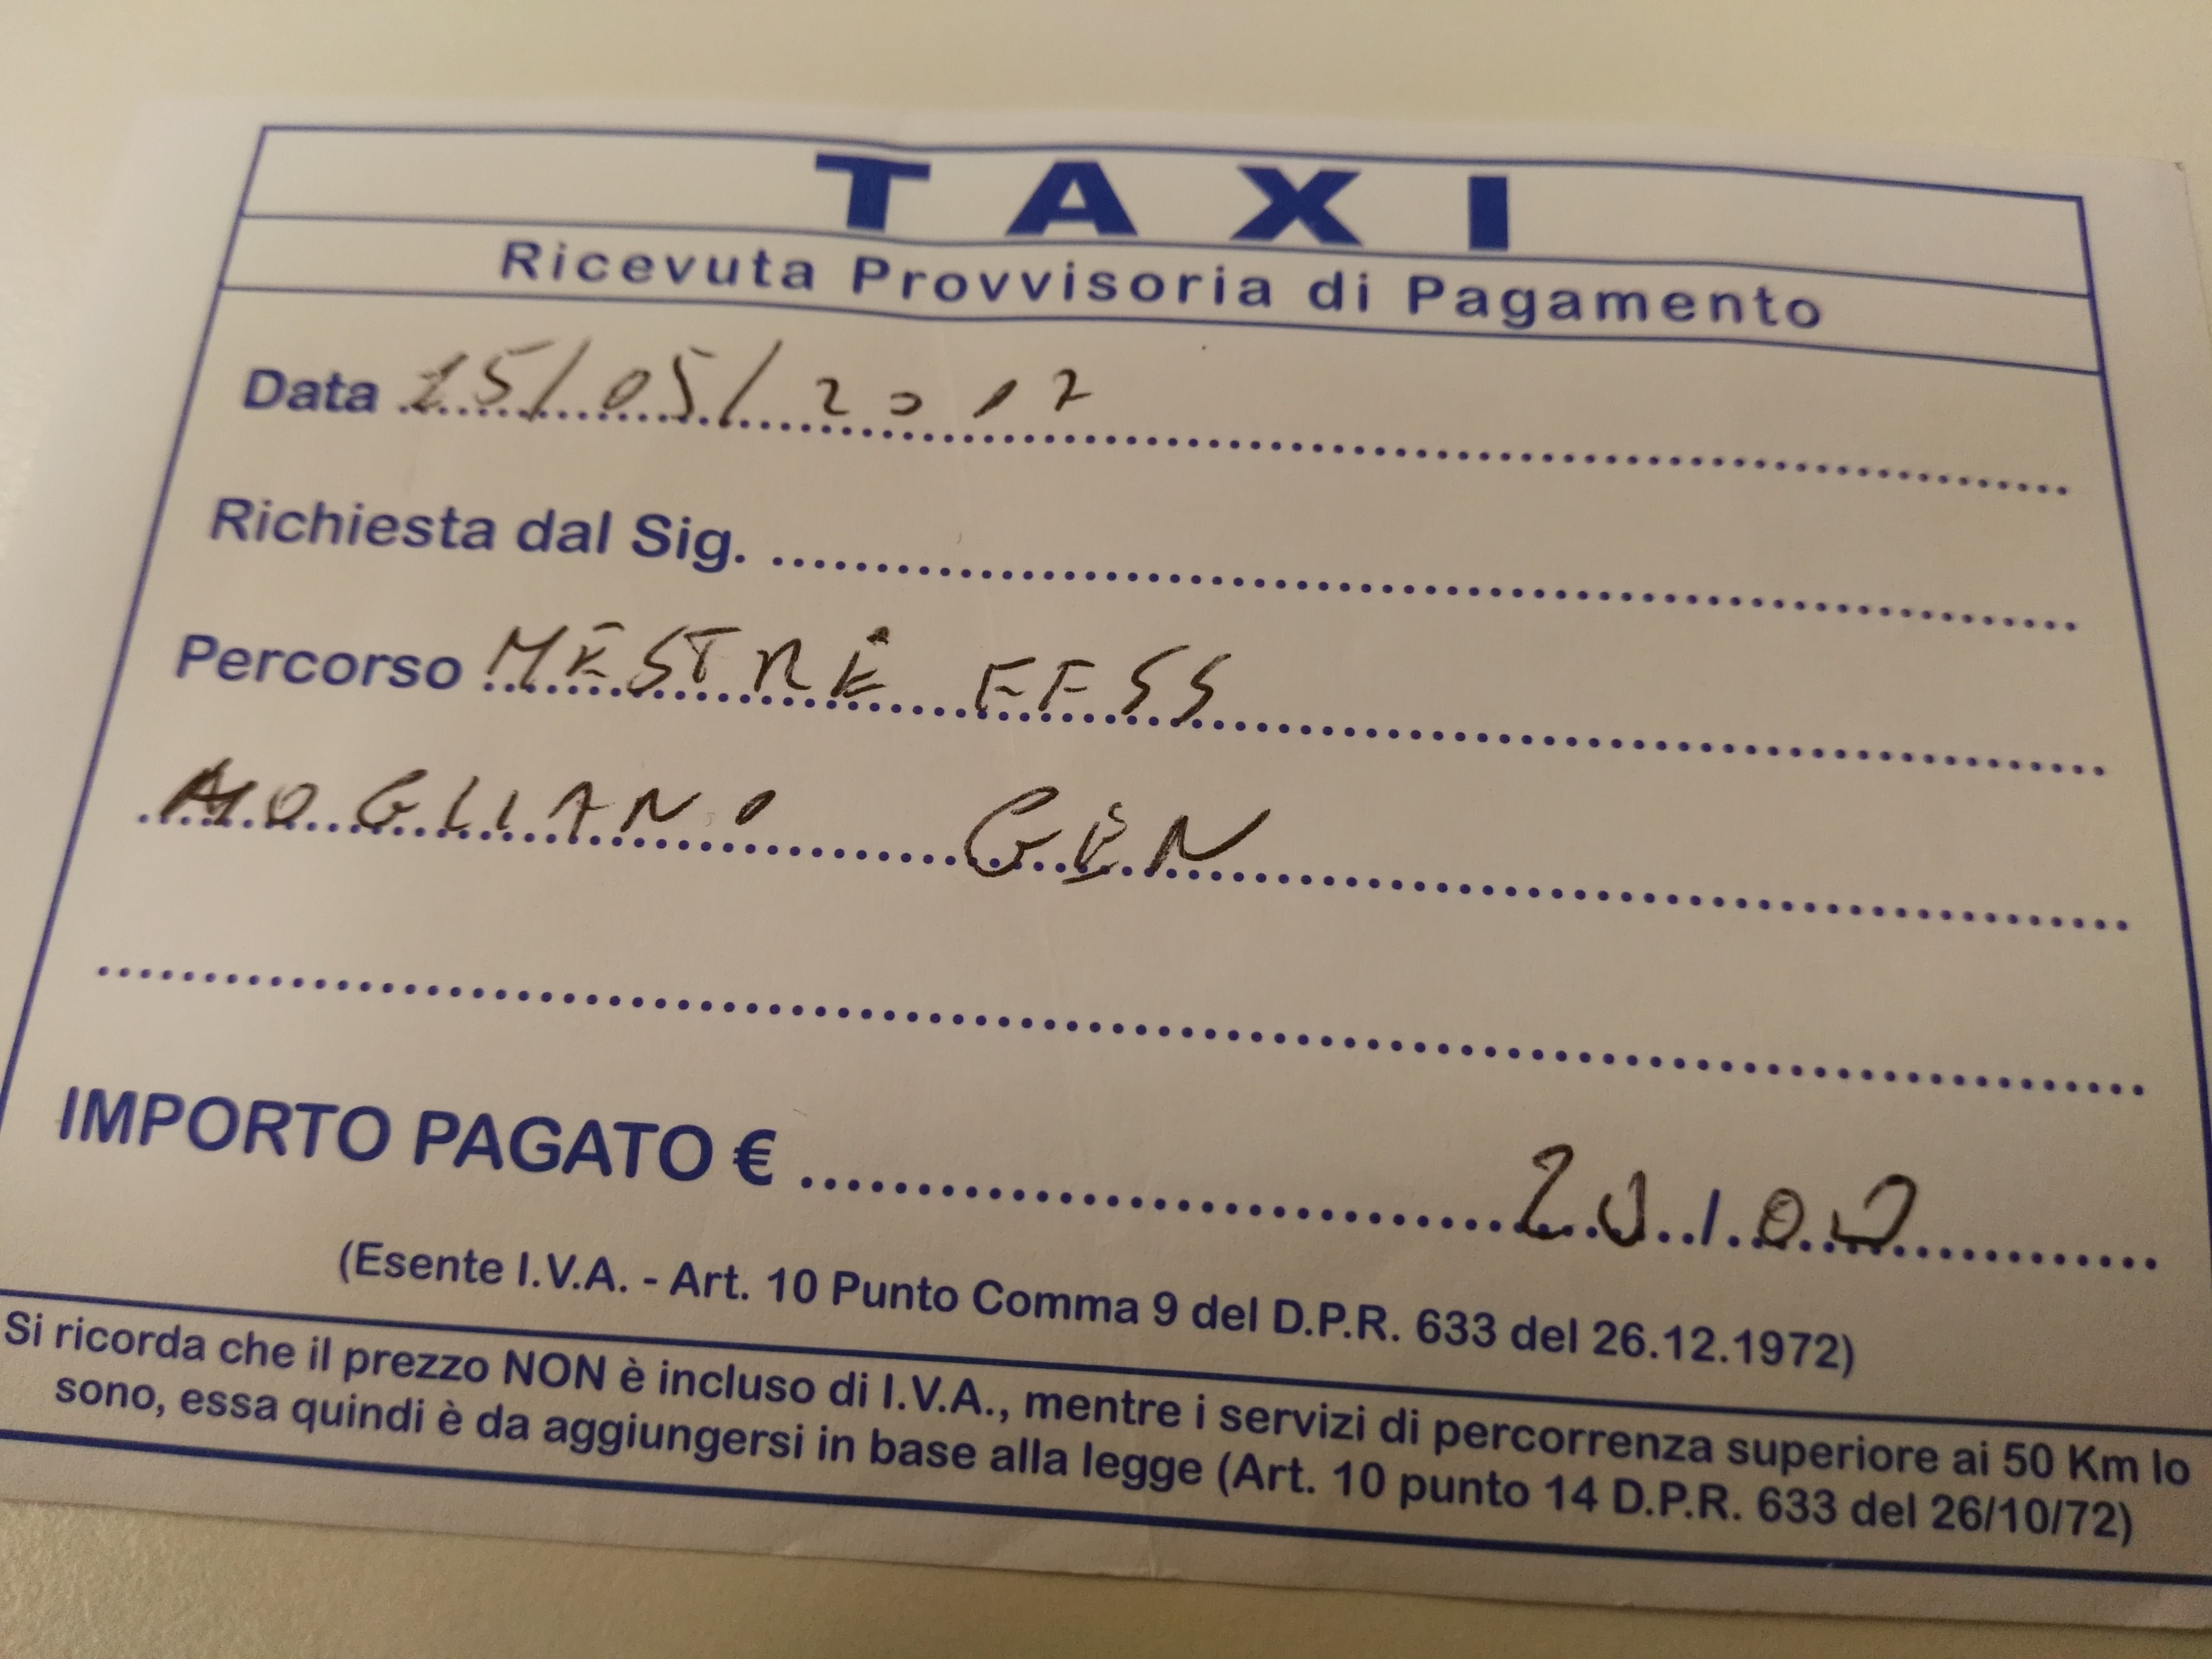 TAXI
Ricevuta Provvisoria di Pagamento
Data 15/05/2017
Richiesta dal Sig.
Percorso MESTRE FFSS
MOGLIANO GEN
IMPORTO PAGATO € 20,00
(Esente I.V.A. - Art. 10 Punto Comma 9 del D.P.R. 633 del 26.12.1972)
Si ricorda che il prezzo NON è incluso di I.V.A., mentre i servizi di percorrenza superiore ai 50 Km lo
sono, essa quindi è da aggiungersi in base alla legge (Art. 10 punto 14 D.P.R. 633 del 26/10/72)